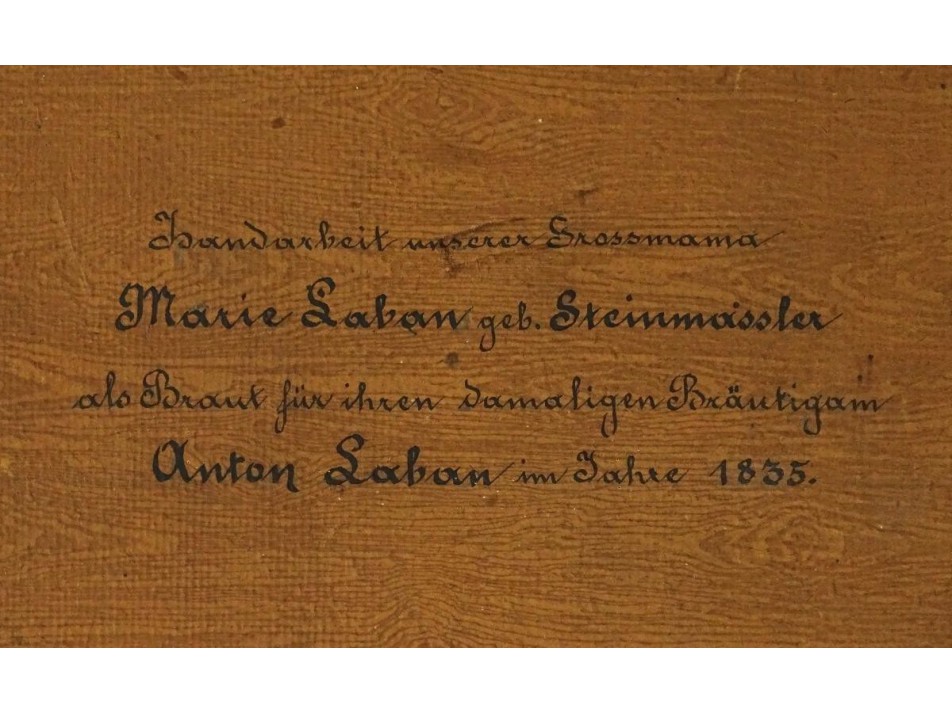 Handarbeit unserer Grossmama
Marie Laban geb. Steinmassler
als Braut für ihren damaligen Bräutigam
Anton Laban im Jahre 1835.